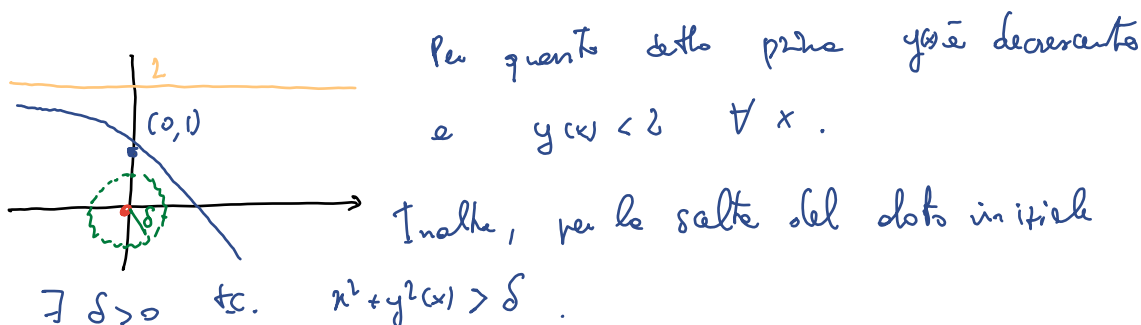 2
Per quanto detto prima y(x) è decrescente
(0,1)
e y(x) < 2 ∀ x .
δ
Inoltre, per la scelta del dato iniziale
∃ δ>0 t.c. x² + y²(x) > δ .